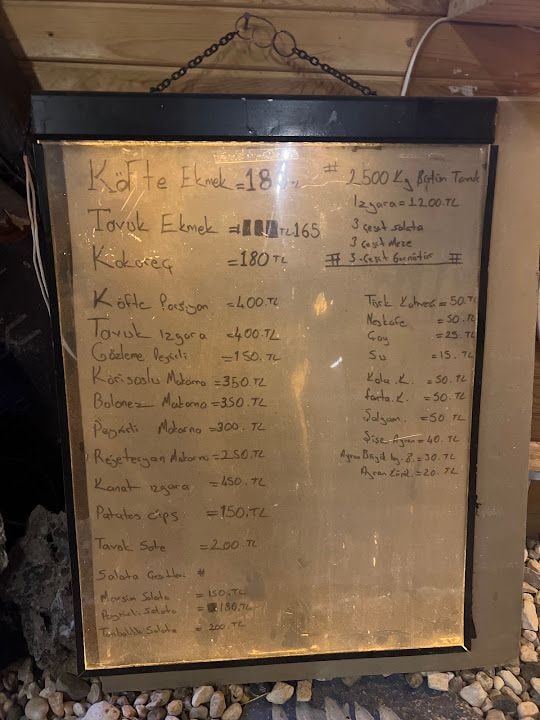 Köfte Ekmek =18
Tavuk Ekmek = TL 165
Kokoreç =180 TL
Köfte Porsiyon =400.TL
Tavuk Izgara =400.TL
Gözleme Peynirli =150.TL
Körisoslu Makarna =350.TL
Bolonez Makarna =350.TL
Peynirli Makarna =300.TL
Makarna =250.TL
Kanat ızgara =450.TL
Patates Cips =150.TL
Tavuk Sote =200.TL
Salata Çeşitleri #
Mevsim Salata =150.TL
Peynirli Salata =180.TL
Salata =200.TL
# 2500 Kg Bütün Tavuk
Izgara=1200.TL
3 çeşit salata
3 çeşit Meze
# 3 Çeşit #
Türk Kahvesi=50.TL
Neskafe =50.TL
Çay =25.TL
Su =15.TL
Kola.K. =50.TL
fanta.K. =50.TL
Şalgam. =50 TL
Şişe Ayran=40.TL
Ayran =30.TL
Ayran =20.TL